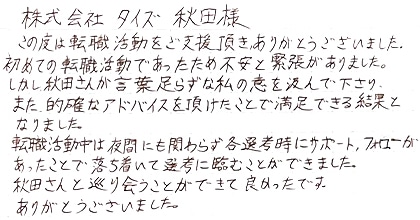 株式会社 タイズ 秋田様
この度は転職活動をご支援頂き、ありがとうございました。
初めての転職活動であったため不安と緊張がありました。
しかし秋田さんが言葉足らずな私の意を汲んで下さり、
また、的確なアドバイスを頂けたことで満足できる結果と
なりました。
転職活動中は夜間にも関わらず各選考時にサポート,フォローが
あったことで落ち着いて選考に臨むことができました。
秋田さんと巡り会うことができて良かったです。
ありがとうございました。